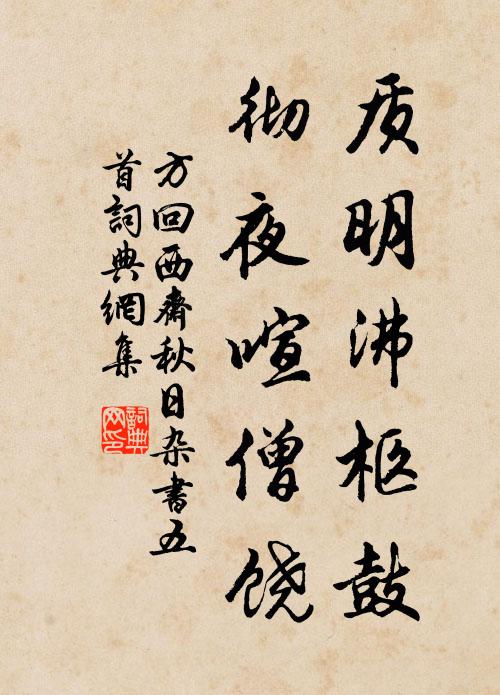 质明沸柩鼓
彻夜喧僧饶
方回西齋秋日杂書五
首詞典網集
詞典网印